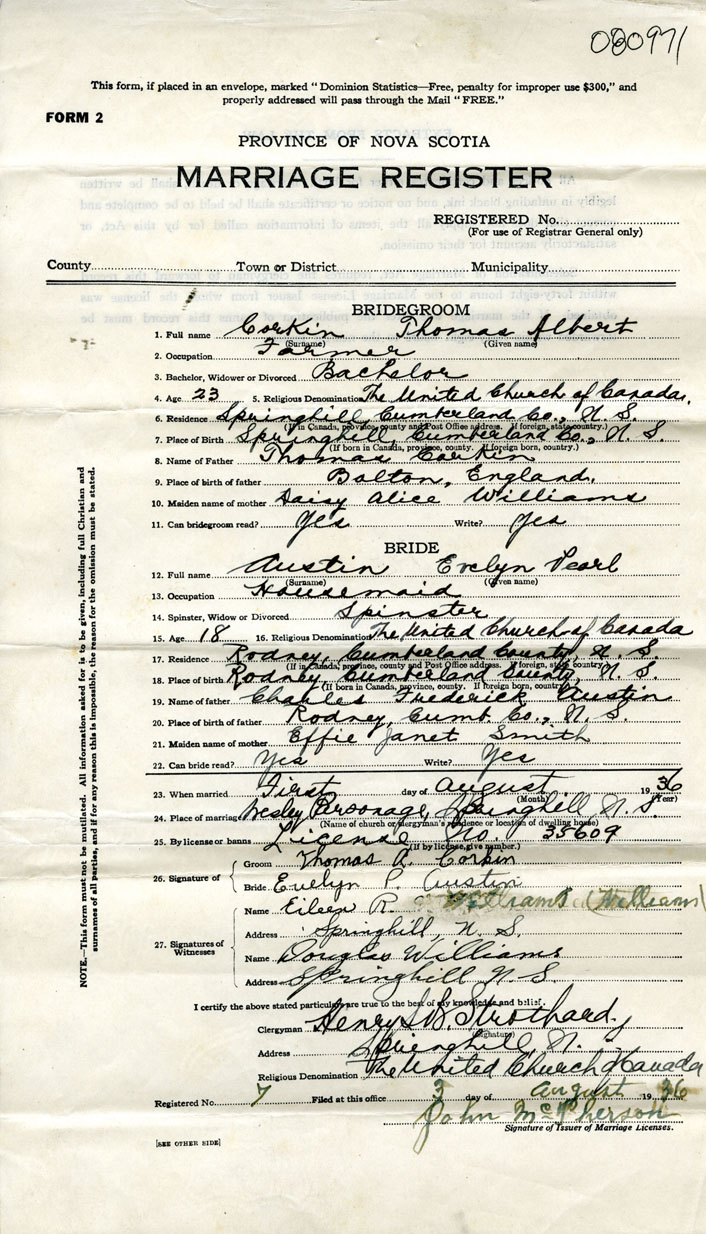 080971
This form, if placed in an envelope, marked "Dominion Statistics—Free, penalty for improper use $300," and
properly addressed will pass through the Mail "FREE."
FORM 2
PROVINCE OF NOVA SCOTIA
MARRIAGE REGISTER
REGISTERED No.
(For use of Registrar General only)
County Town or District Municipality
BRIDEGROOM
1. Full name Corkin Thomas Albert
(Surname) (Given name)
2. Occupation Farmer
3. Bachelor, Widower or Divorced Bachelor
4. Age 23 5. Religious Denomination The United Church of Canada.
6. Residence Springhill, Cumberland Co., N. S.
(If in Canada, province, county and Post Office address. If foreign, state country.)
7. Place of Birth Springhill, Cumberland Co., N. S.
(If born in Canada, province, county. If foreign born, country.)
8. Name of Father Thomas Corkin
9. Place of birth of father Bolton, England.
10. Maiden name of mother Daisy Alice Williams
11. Can bridegroom read? Yes Write? Yes
BRIDE
12. Full name Austin Evelyn Pearl
(Surname) (Given name)
13. Occupation Housemaid
14. Spinster, Widow or Divorced Spinster
15. Age 18 16. Religious Denomination The United Church of Canada
17. Residence Rodney, Cumberland County, N. S.
(If in Canada, province, county and Post Office address. If foreign, state country)
18. Place of birth Rodney, Cumberland County, N. S.
(If born in Canada, province, county. If foreign born, country)
19. Name of father Charles Frederick Austin
20. Place of birth of father Rodney, Cumb. Co., N. S.
21. Maiden name of mother Effie Janet Smith
22. Can bride read? Yes Write? Yes
23. When married First day of August 1936
(Month) (Year)
24. Place of marriage Wesley Parsonage, Springhill N. S.
(Name of church or clergyman's residence or location of dwelling house)
25. By license or banns License No. 35609
(If by license, give number.)
26. Signature of
Groom Thomas A. Corkin
Bride Evelyn P. Austin
27. Signatures of Witnesses
Name Eileen R. Williams (Williams)
Address Springhill, N. S.
Name Douglas Williams
Address Springhill N. S.
I certify the above stated particulars are true to the best of my knowledge and belief.
Clergyman Henry S. B. Strothard
(Signature)
Address Springhill, N.
Religious Denomination The United Church of Canada
Registered No. 7 Filed at this office 3 day of August 1936
John McPherson
Signature of Issuer of Marriage Licenses.
[SEE OTHER SIDE]
NOTE.—This form must not be mutilated. All information asked for is to be given, including full Christian and
surnames of all parties, and if for any reason this is impossible, the reason for the omission must be stated.